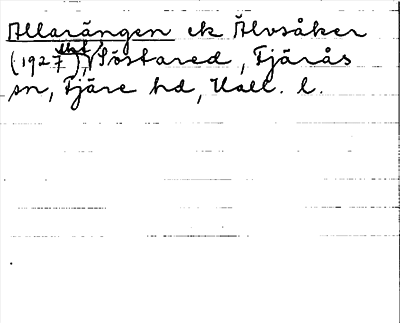 Allarängen ek Älvsåker
(1927), Söstared, Fjärås
sn, Fjäre hd, Hall. l.